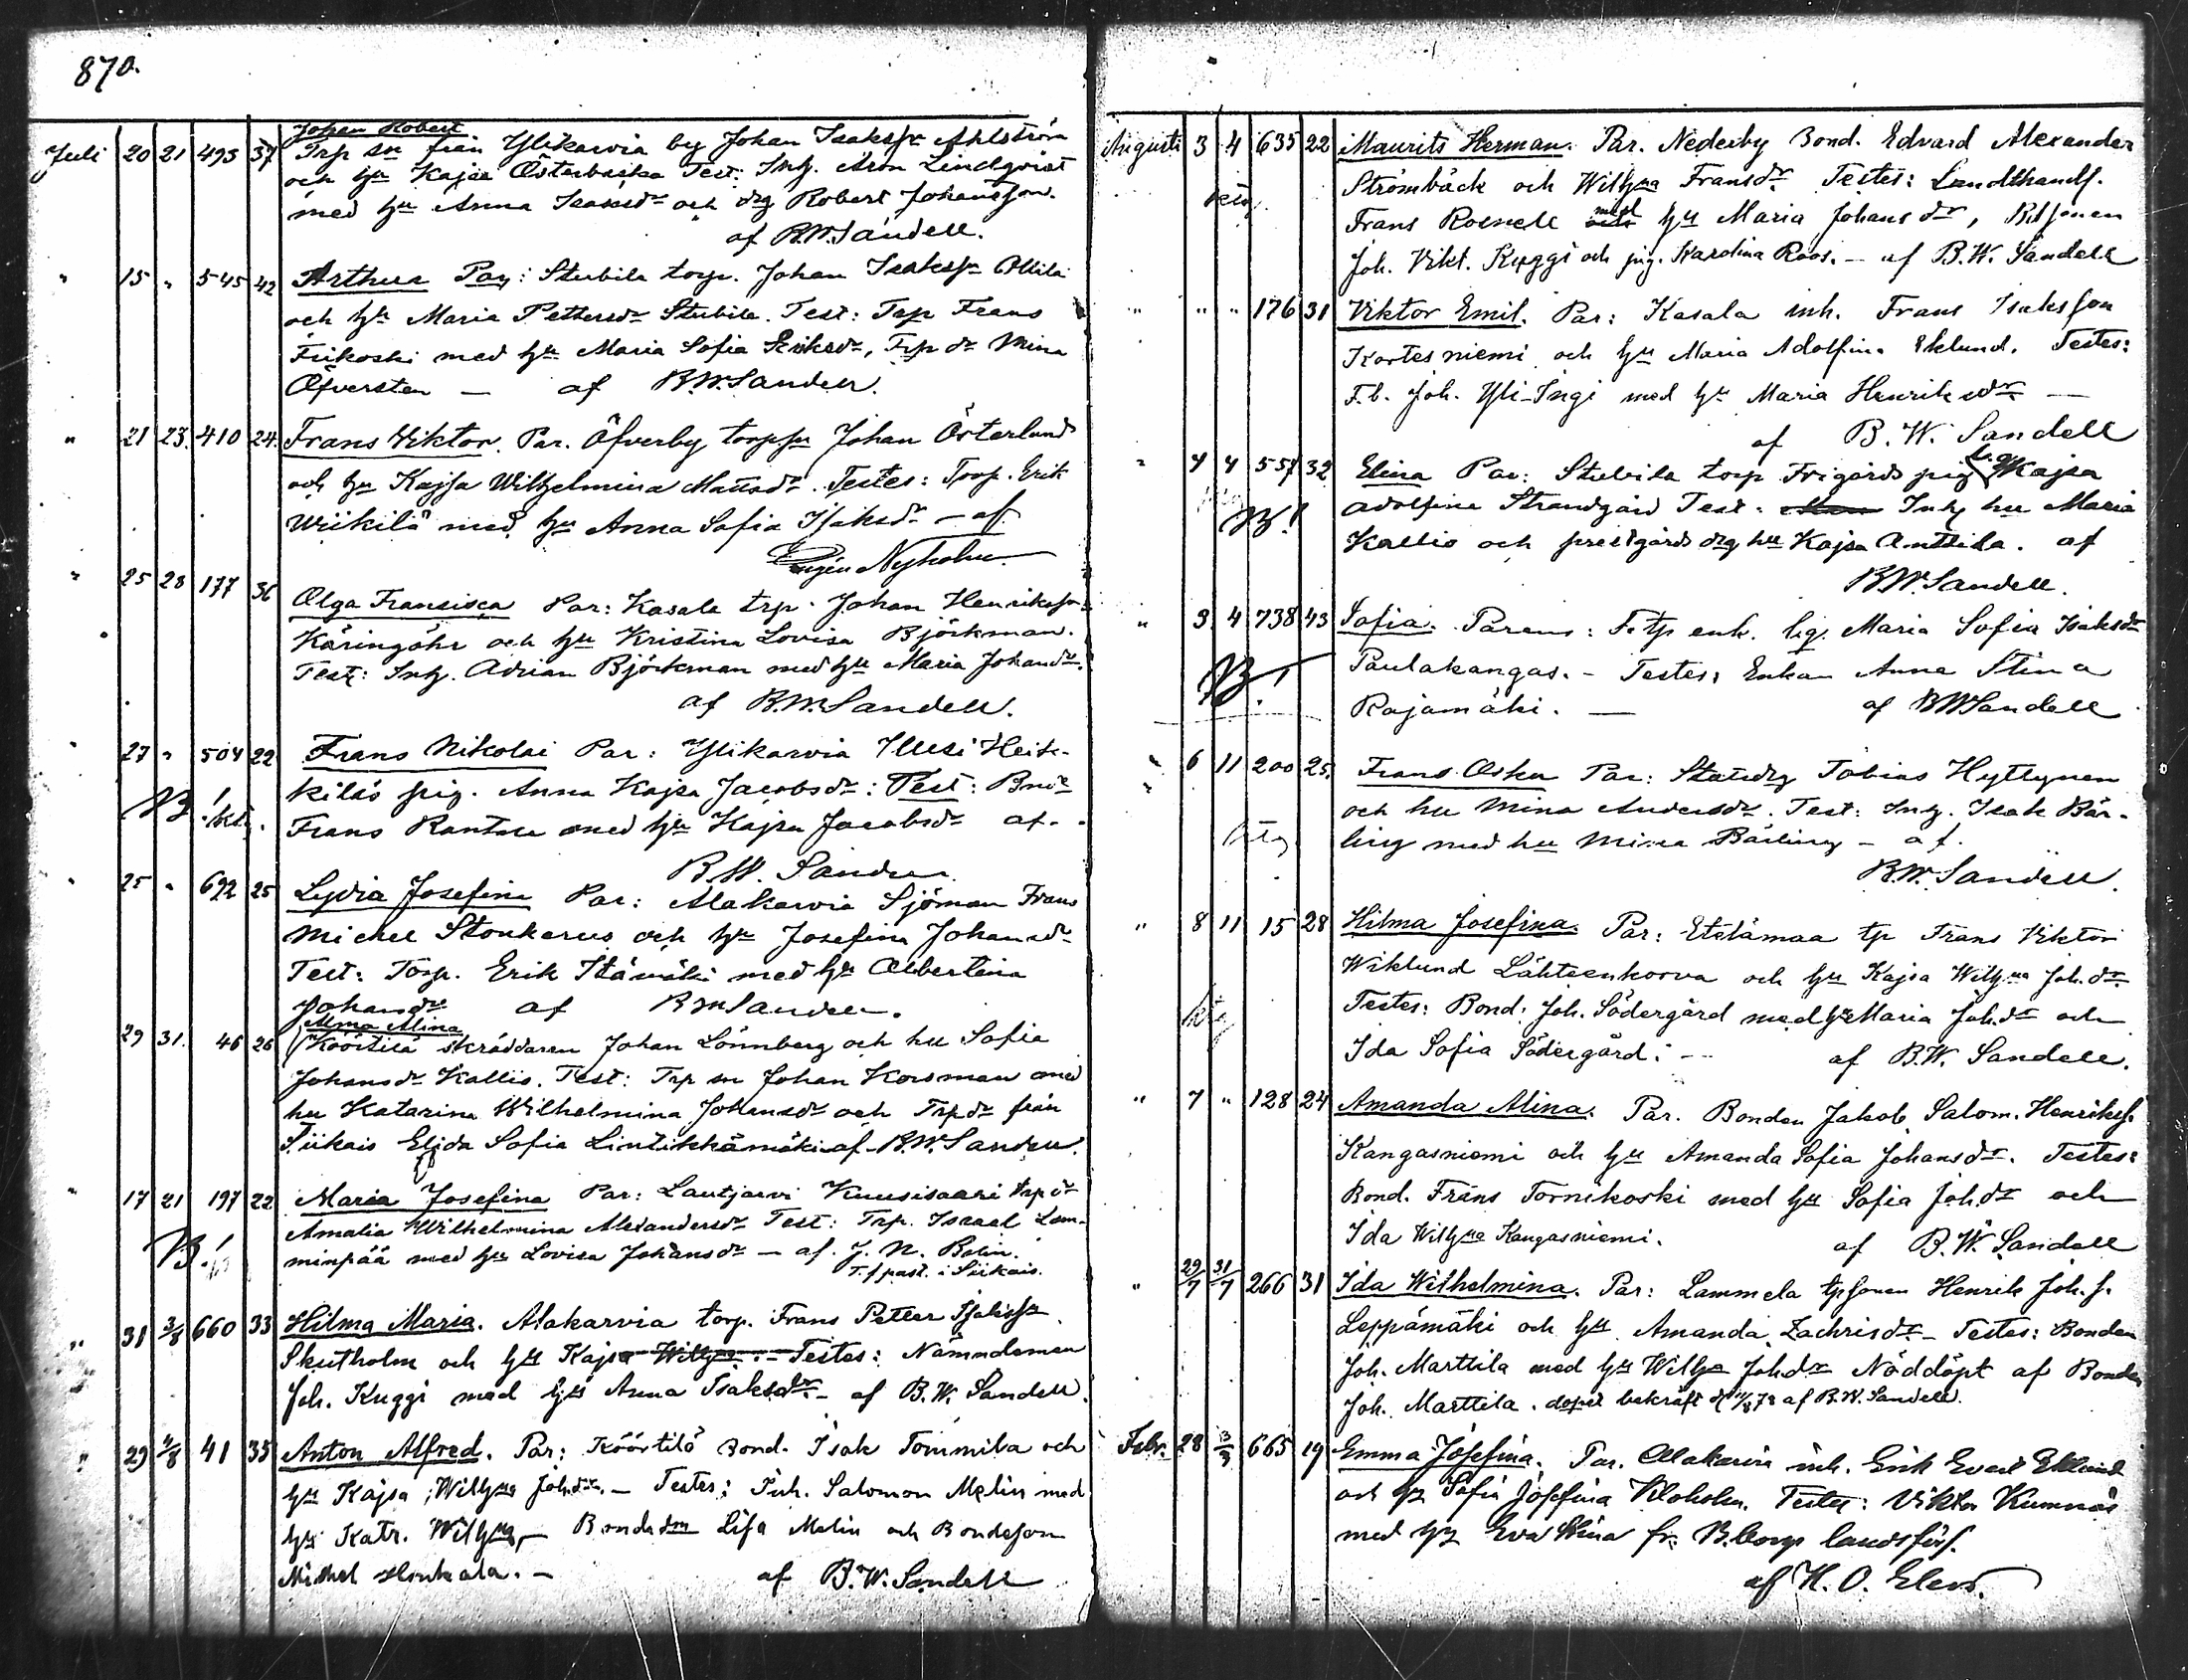 870.
Johan Robert
Juli 20 21 495 37 Trp sn från Ylikarvia by Johan Isakssn Ahlström
och hu Kajsa Österbacka Test: Inh. Aron Lindqvist
med hu Anna Isaksdr och drg Robert Johansson.
af B.W. Sandell.
" 15 " 545 42 Arthur Par: Stubila torp. Johan Isakssn Ollila
och hu Maria Pettersdr Stubila. Test: Trp Frans
Frikoski med hu Maria Sofia Eriksdr, Trp dr Mina
Öfversten — af B.W. Sandell.
" 21 23. 410 24. Frans Viktor. Par. Öfverby torpsn Johan Österlund
och hu Kajsa Wilhelmina Matsdr. Testes: Torp. Erik
Wiikilä med hu Anna Sofia Isaksdr – af
Nyholm
" 25 28 177 36 Olga Fransisca Par: Kasala trp. Johan Henrikssn
Käringöhr och hu Kristina Lovisa Björkman.
Test: Inh. Adrian Björkman med hu Maria Johansdr.
af B.W. Sandell.
" 27 " 504 22 Frans Nikolai Par: Ylikarvia Yllesi Heik-
kiläs pig. Anna Kajsa Jacobsdr: Test: Bnd
Frans Rantala med hu Kajsa Jacobsdr af.
B.W. Sandell
" 25 " 692 25 Lydia Josefina Par: Alakarvia Sjöman Frans
Michel Stenkarus och hu Josefina Johansdr
Test: Torp. Erik Itämäki med hu Albertina
Johansdr af B.W. Sandell.
Alma Alina
29 31. 46 26 Köörtilä skräddaren Johan Lönnberg och hu Sofia
Johansdr Kallio. Test: Trp sn Johan Korsman med
hu Katarina Wilhelmina Johansdr och Trp dr från
Siikais Elida Sofia Lintikkämäki af B.W. Sandell.
" 17 21 197 22 Maria Josefina Par: Lautjarvi Kuusisaari trp dr
Amalia Wilhelmina Alexandersdr Test: Trp. Israel Lam-
minpää med hu Lovisa Johansdr — af. J. N. Bolin.
T.f past. i Siikais.
" 31 3/8 660 33 Hilma Maria. Alakarvia torp. Frans Petter Isakssn
Skutholm och hu Kajsa Wilhma. – Testes: Nämndeman
Joh. Kuggi med hu Anna Isaksdr. – af B.W. Sandell.
" 29 4/8 41 35 Anton Alfred. Par: Köörtilä Bond. Isak Tommila och
hu Kajsa Wilhma Johdr. – Testes: Inh. Salomon Melin med
hu Katr. Wilhma, – Bondedtr Lisa Malin och Bondeson
Michel Honkala. – af B.W. Sandell
Augusti 3 4 635 22 Maurits Herman. Par. Nederby Bond. Edvard Alexander
Strömbäck och Wilhma Fransdr. Testes: Landthandl.
Frans Rosnell med hu Maria Johansdr, Btsonen
Joh. Vikt. Kuggi och pig. Karolina Roos. – af B.W. Sandell
" " " 176 31 Viktor Emil. Par: Kasala inh. Frans Isaksson
Kortesniemi och hu Maria Adolfina Eklund. Testes:
F.b. Joh. Yli-Ingi med hu Maria Henriksdr —
af B.W. Sandell
" 4 4 557 32 Elina Par: Stubila torp Frigårds pig Kajsa
Adolfina Strandgård Test: Inh hu Maria
Kallio och prestgårds drg hu Kajsa Anttila. af
B.W. Sandell.
" 3. 4 738 43 Sofia. Parens: F. tp enk. lig. Maria Sofia Isaksdr
Paulakangas. – Testes: Enkan Anna Stina
Rajamäki. — af B.W. Sandell
" 6 11 200 25. Frans Oskar Par: Statdrg Tobias Hyttynen
och hu Mina Andersdr. Test: Inh. Isak Bär-
ling med hu Mina Bärling – af.
B.W. Sandell.
" 8 11 15 28 Hilma Josefina. Par: Etelämaa tp Frans Viktor
Wiklund Lähteenkorva och hu Kajsa Wilhma Joh.dr.
Testes: Bond. Joh. Södergård med hu Maria Joh.dr och
Ida Sofia Södergård. — af B.W. Sandell.
" 7 " 128 24 Amanda Alina. Par. Bonden Jakob Salom. Henrikss.
Kangasniemi och hu Amanda Sofia Johansdr. Testes:
Bond. Frans Tornikoski med hu Sofia Joh.dr och
Ida Wilhma Kangasniemi. af B.W. Sandell
" 29/7 31/7 266 31 Ida Wilhelmina. Par: Lammela tpsonen Henrik Joh. s.
Leppämäki och hu Amanda Zachrisdr. – Testes: Bonden
Joh. Marttila med hu Wilhma Johdr Nöddöpt af Bonden
Joh. Marttila. dopet bekräft d 11/8 78 af B.W. Sandell.
Febr. 28 3/3 665 19 Emma Josefina. Par. Alakarvia inh. Erik Evert Eklund
och hu Sofia Josefina Klåholm. Testes: Viktor Kumnäs
med hu Eva Stina fr. B.borgs landsförs.
af K. O. Elers.